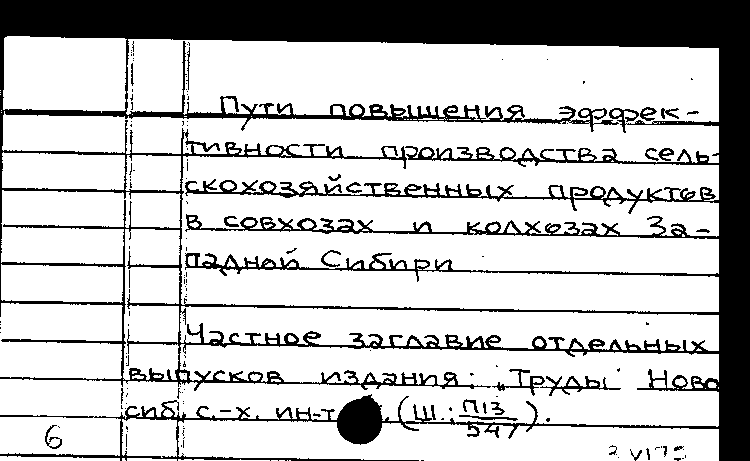 Пути повышения эффек-
тивности производства сель-
скохозяйственных продуктов
в совхозах и колхозах За-
падной Сибири
Частное заглавие отдельных
выпусков издания: „Труды Ново
сиб. с.-х. ин-т (Ш: П13/547).
6